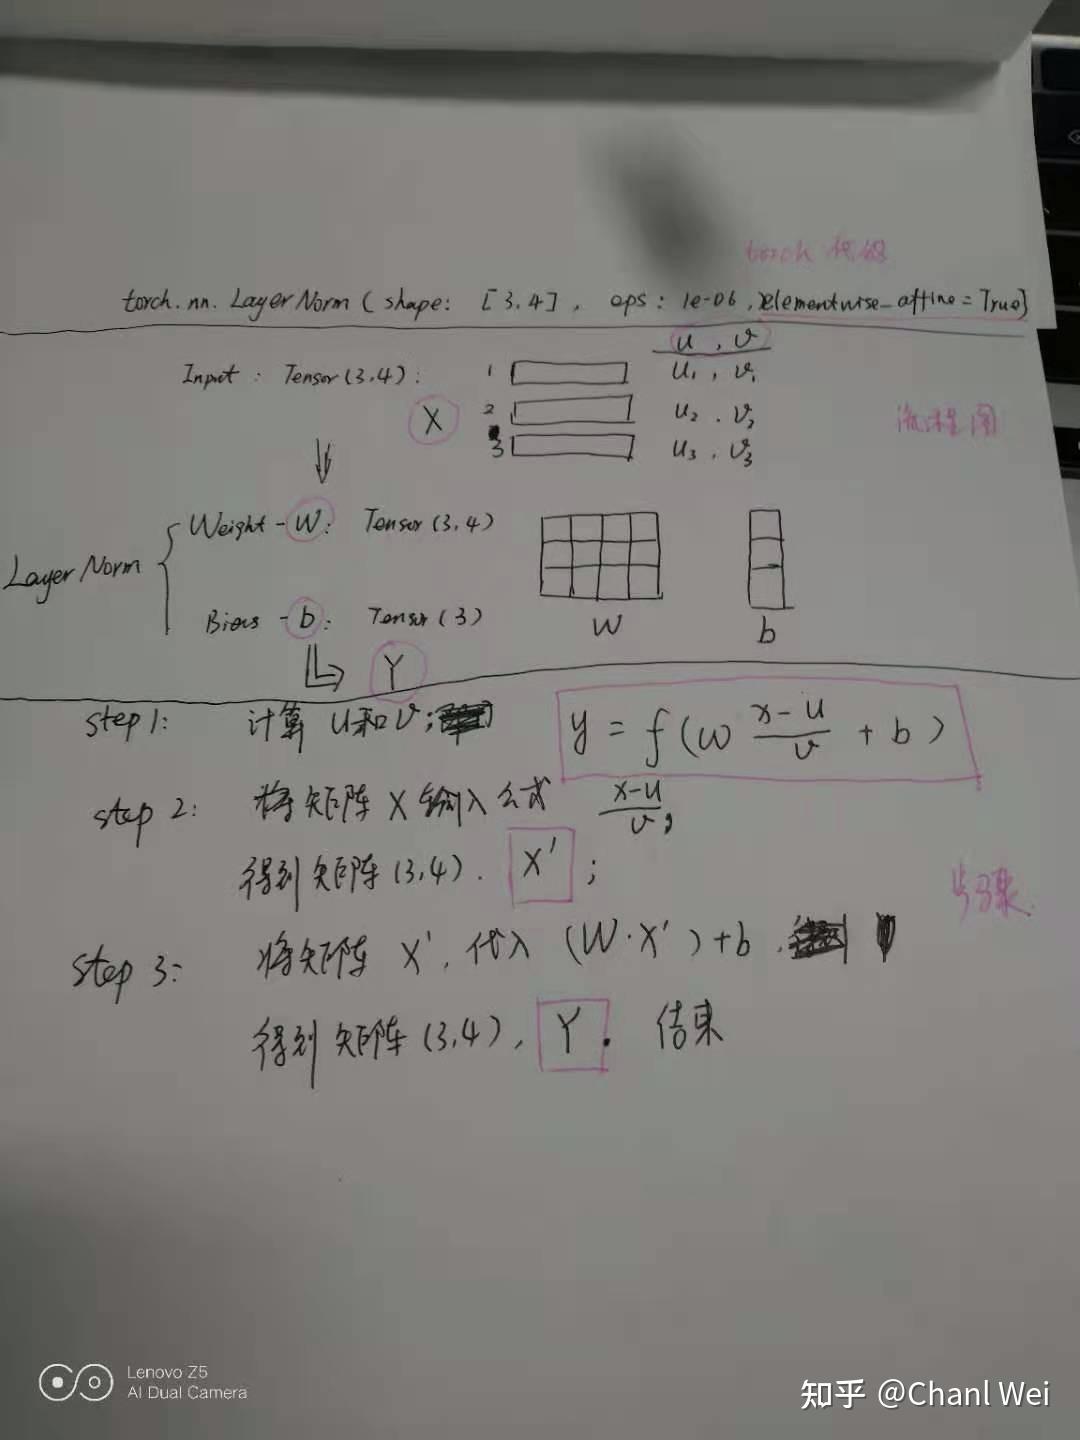 torch 代码
torch.nn.LayerNorm(shape: [3.4], eps: 1e-06, elementwise_affine=True)
u, v
Input: Tensor(3.4): 1 u₁, v₁
X 2 u₂, v₂
3 u₃, v₃
流程图
Weight-W: Tensor(3,4)
LayerNorm
Bias-b: Tensor(3)
W b
Y
step 1: 计算 u和v;
y = f(w (x-u)/v + b)
step 2: 将矩阵 X 输入公式 (x-u)/v,
得到矩阵(3,4). X' ;
步骤.
step 3: 将矩阵 X', 代入 (W·X')+b,
得到矩阵(3,4), Y. 结束
Lenovo Z5
AI Dual Camera
知乎 @Chanl Wei